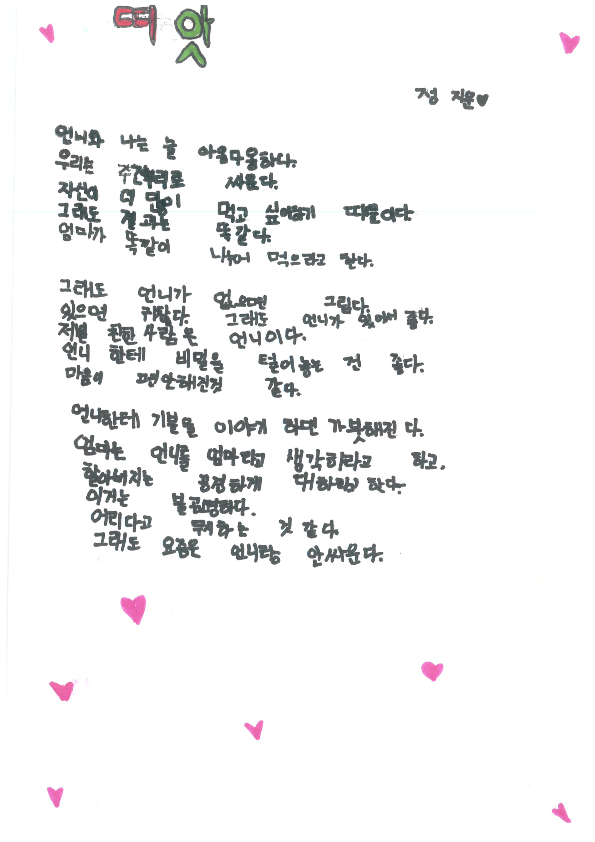 띠앗
정 지윤
언니와 나는 늘 아웅다웅하다.
우리는 싸운다.
자신이 더 많이 먹고 싶어하기 때문이다.
그래도 결과는 똑같다.
엄마가 똑같이 나누어 먹으라고 한다.
그래도 언니가 없으면 그립다.
있으면 귀찮다. 그래도 언니가 있어서 좋다.
제벌 친한 사람은 언니이다.
언니 한테 비밀을 털어놓는 건 좋다.
마음이 편안해진것 같다.
언니한테 기분을 이야기 하면 가붓해진다.
엄마는 언니를 엄마라고 생각하라고 하고.
할아버지는 공평하게 대하라고 한다.
이거는 불공평하다.
어리다고 하는 것 같다.
그래도 요즘은 언니랑 안싸운다.